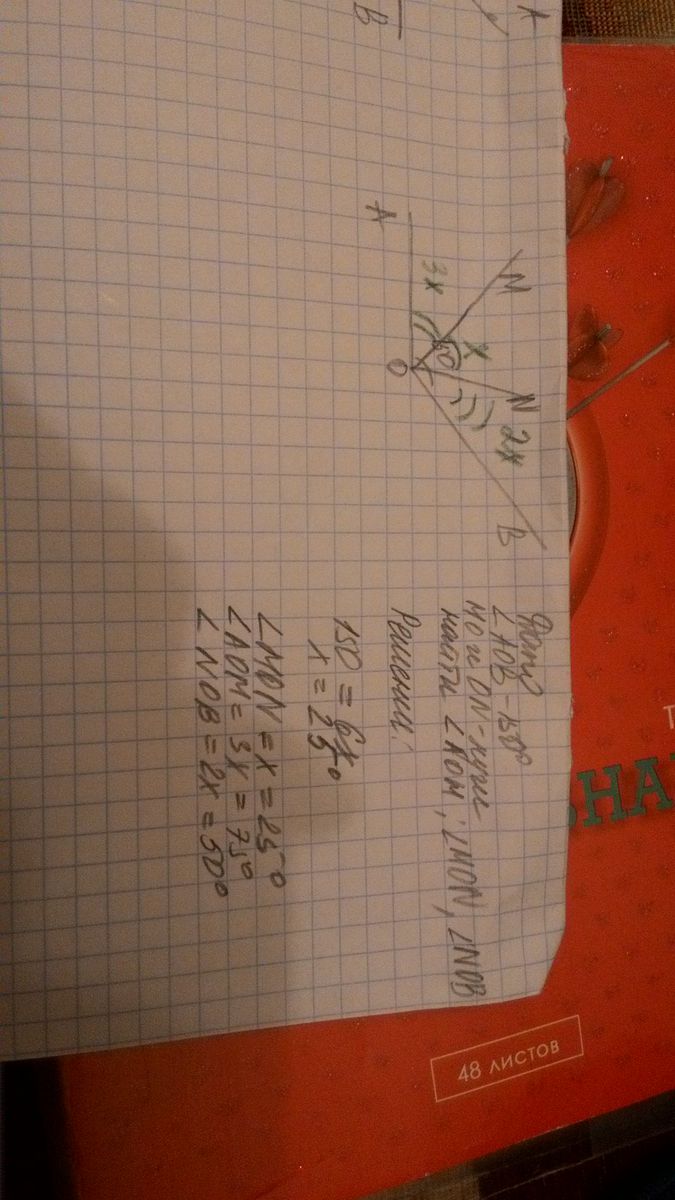 A
B
A
M
N
B
O
3x
x
2x
Дано
∠AOB - 150°
MO и ON - лучи
найти ∠AOM; ∠MON, ∠NOB
Решение:
150 = 6x
x = 25°
∠MON = x = 25°
∠AOM = 3x = 75°
∠NOB = 2x = 50°
48 листов